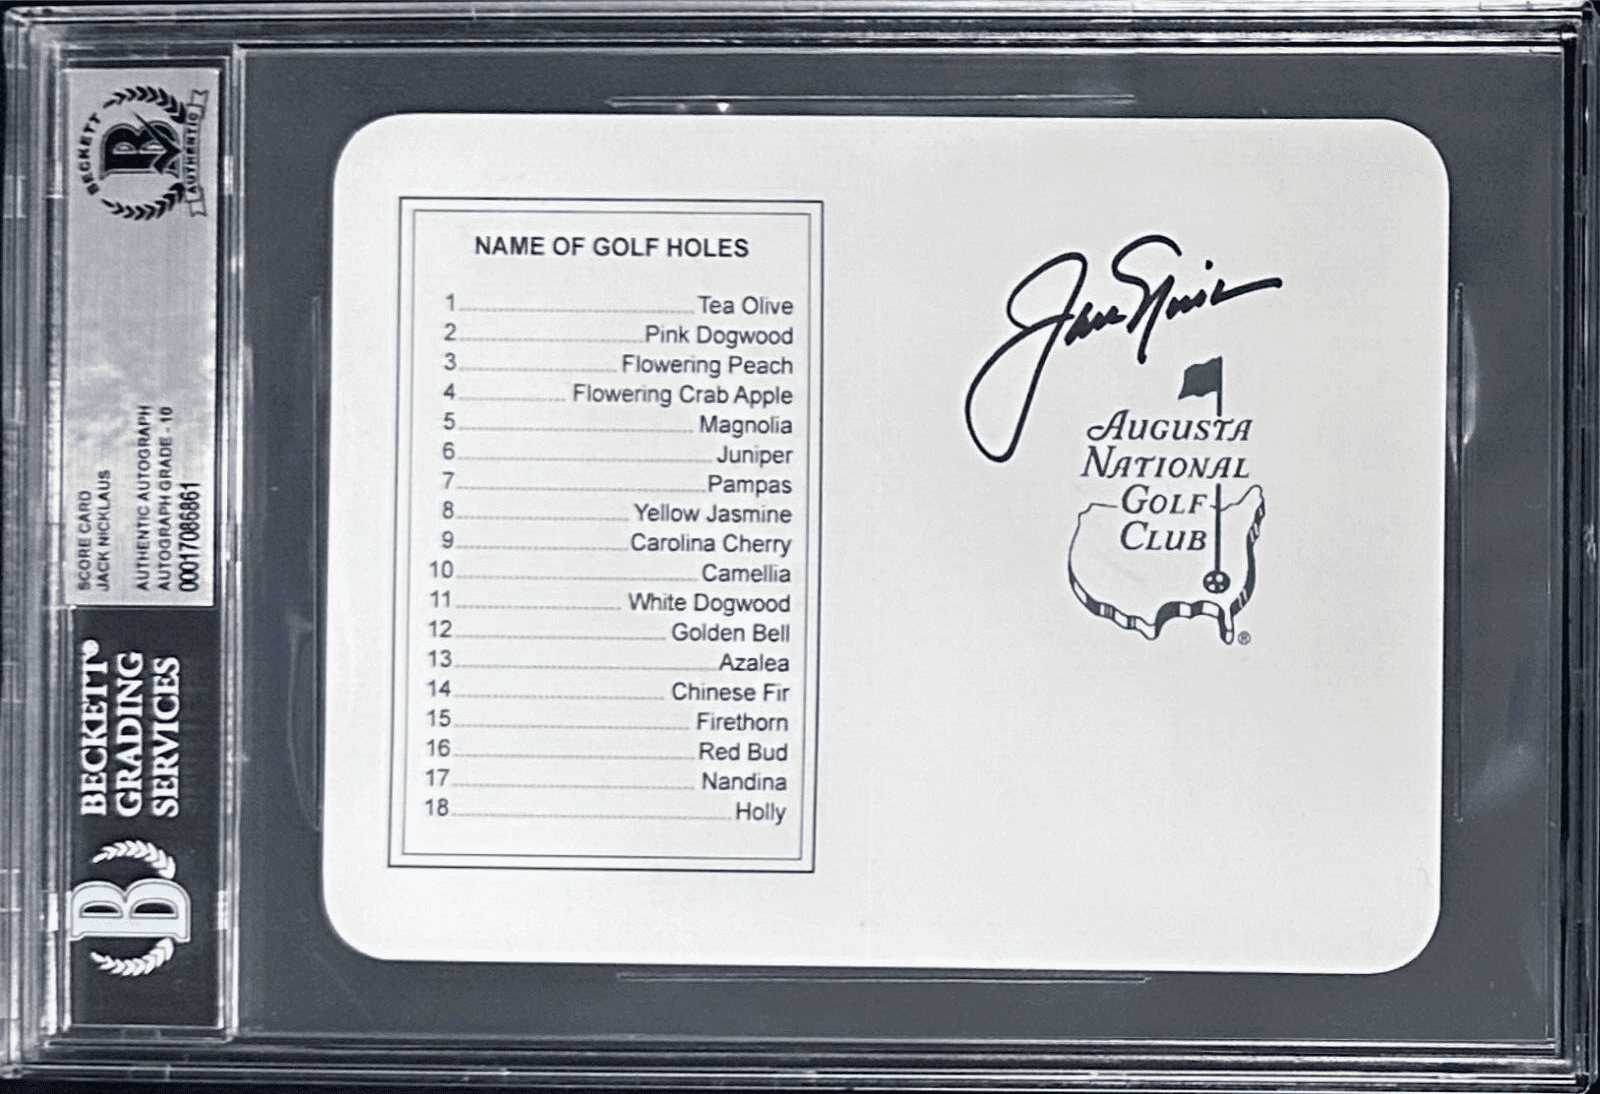 BECKETT
AUTHENTIC
SCORE CARD
JACK NICKLAUS
AUTHENTIC AUTOGRAPH
AUTOGRAPH GRADE - 10
00017086861
BECKETT®
GRADING
SERVICES
B
NAME OF GOLF HOLES
1 Tea Olive
2 Pink Dogwood
3 Flowering Peach
4 Flowering Crab Apple
5 Magnolia
6 Juniper
7 Pampas
8 Yellow Jasmine
9 Carolina Cherry
10 Camellia
11 White Dogwood
12 Golden Bell
13 Azalea
14 Chinese Fir
15 Firethorn
16 Red Bud
17 Nandina
18 Holly
Jack Nicklaus
AUGUSTA
NATIONAL
GOLF
CLUB
®